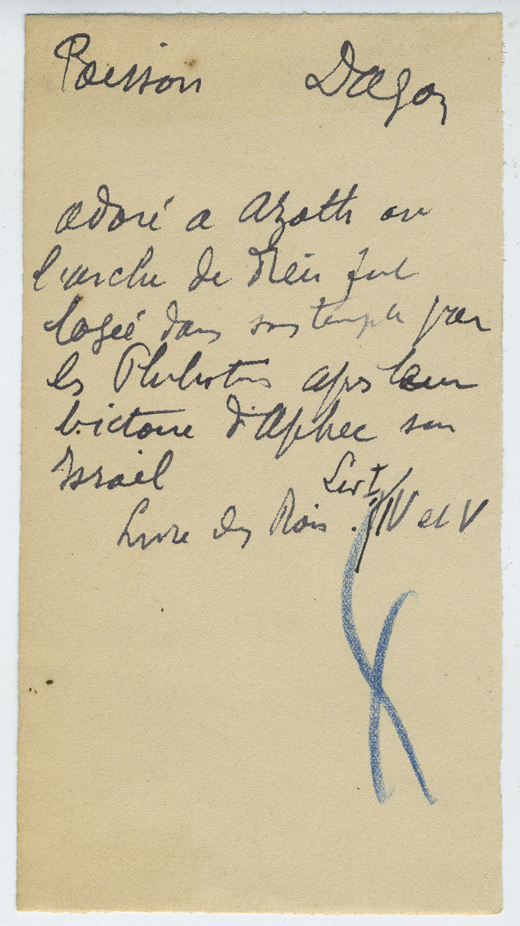 Poisson Dagon
adoré a Azoth ou
l'arche de Dieu fut
logée dans son temple par
les Philistins apres leur
victoire d'Aphec sur
Israël
Livre des Rois . IV et V